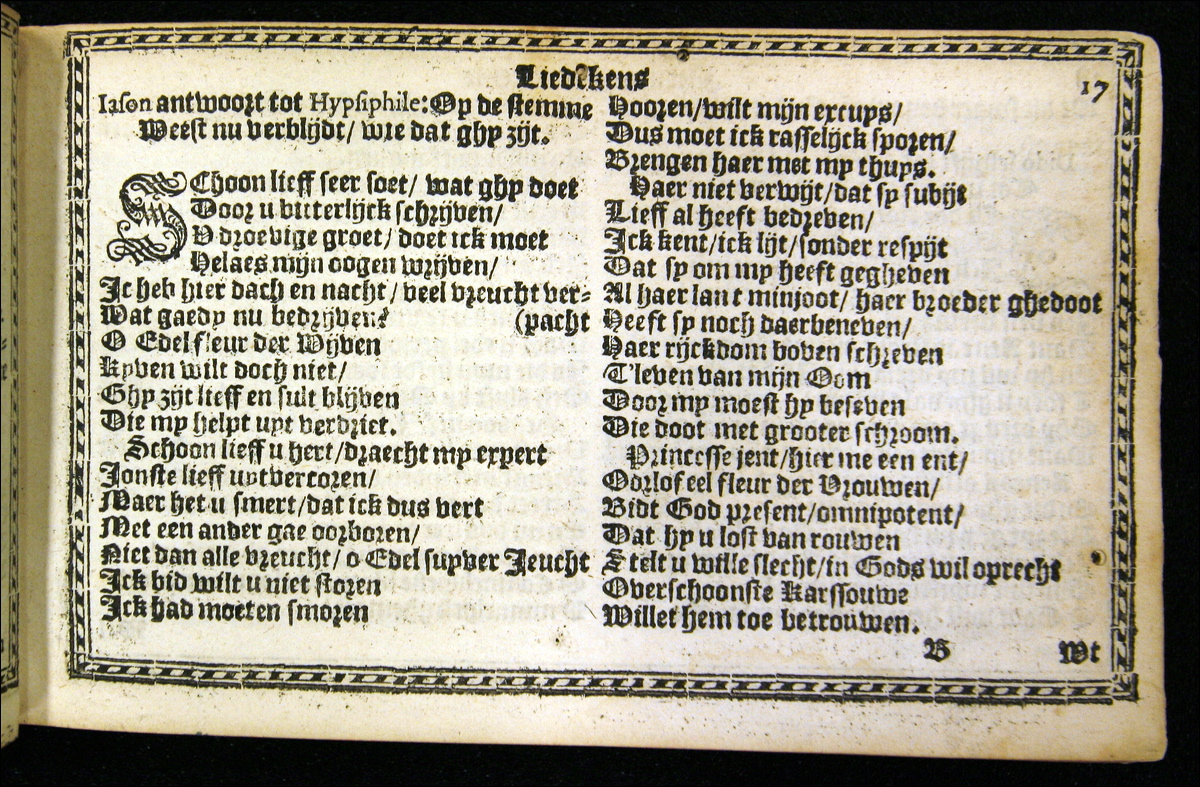 Liedekens
17
Iason antwoort tot Hypsiphile: Op de stemme
Weest nu verblijdt/ wie dat ghy zijt.
SChoon lieff seer soet/ wat ghy doet
Door u bitterlijck schrijven/
V droevige groet/ doet ick moet
Helaes mijn oogen wrijven/
Ic heb hier dach en nacht/ veel vreucht ver-
Wat gaedy nu bedrijven? (pacht
O Edel fleur der Wijven
Kyven wilt doch niet/
Ghy zijt lieff en sult blijven
Die my helpt uyt verdriet.
Schoon lieff u hert/ draecht my expert
Jonste lieff uytvercoren/
Maer het u smert/ dat ick dus vert
Met een ander gae oorboren/
Niet dan alle vreucht/ o Edel suyver Jeucht
Ick bid wilt u niet storen
Ick had moeten smoren
Hooren/ wilt mijn excuys/
Dus moet ick rasselijck sporen/
Brengen haer met my thuys.
Haer niet verwijt/ dat sy subijt
Lieff al heeft bedreven/
Ick kent/ ick lijt/ sonder respijt
Dat sy om my heeft gegheven
Al haer lant minjoot/ haer broeder ghedoot
Heeft sy noch daerbeneven/
Haer rijckdom boven schreven
T'leven van mijn Oom
Door my moest hy beseven
Die doot met grooter schroom.
Princesse jent/ hier me een ent/
Oorlof eel fleur der Vrouwen/
Bidt God present/ omnipotent/
Dat hy u lost van rouwen
Stelt u wille slecht/ in Gods wil oprecht
Overschoonste Karssouwe
Willet hem toe betrouwen.
B
Wt